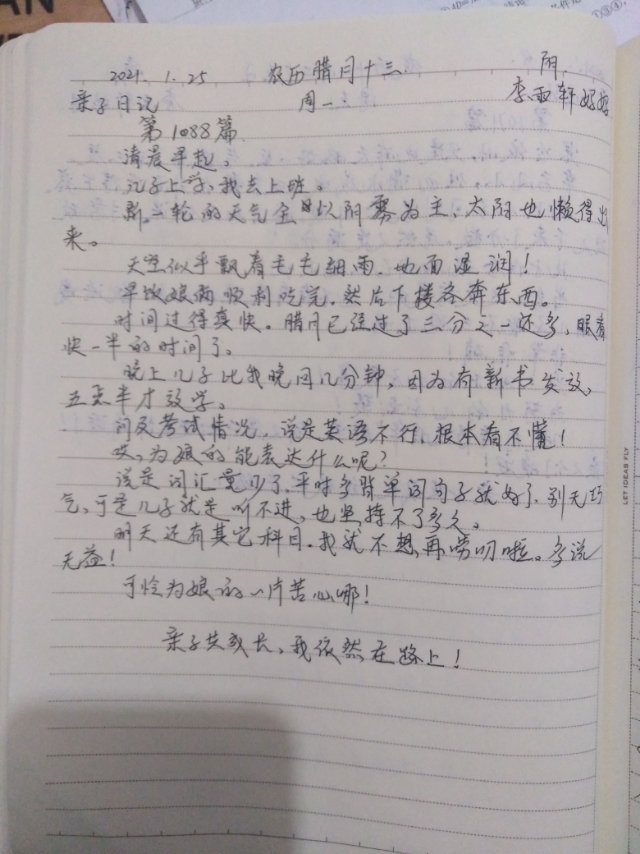 2021. 1. 25 农历腊月十三 阴
亲子日记 周一 李雨轩妈妈
第1088篇
清晨早起
儿子上学,我去上班。
新一轮的天气全以阴雾为主,太阳也懒得出
来。
天空似乎飘着毛毛细雨,地面湿润!
早饭娘俩顺利吃完,然后下楼各奔东西。
时间过得真快。腊月已经过了三分之一还多,眼看
快一半的时间了。
晚上儿子比我晚回几分钟,因为有新书发放,
五点半才放学。
问及考试情况,说是英语不行,根本看不懂!
哎,为娘的能表达什么呢?
说是词汇量少了,平时多背单词句子就好了,别无巧
气,于是儿子就是听不进,也坚持不了多久。
明天还有其它科目,我就不想再唠叨啦。多说
无益!
可怜为娘的一片苦心哪!
亲子共成长,我依然在路上!
LET IDEAS FLY